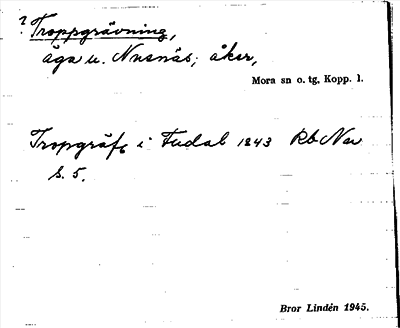 ? Troppgrävning,
äga u. Nusnäs; åker,
Mora sn o. tg, Kopp. l.
Tropgräf i Fudal 1843 Rb Nev
s. 5.
Bror Lindén 1945.